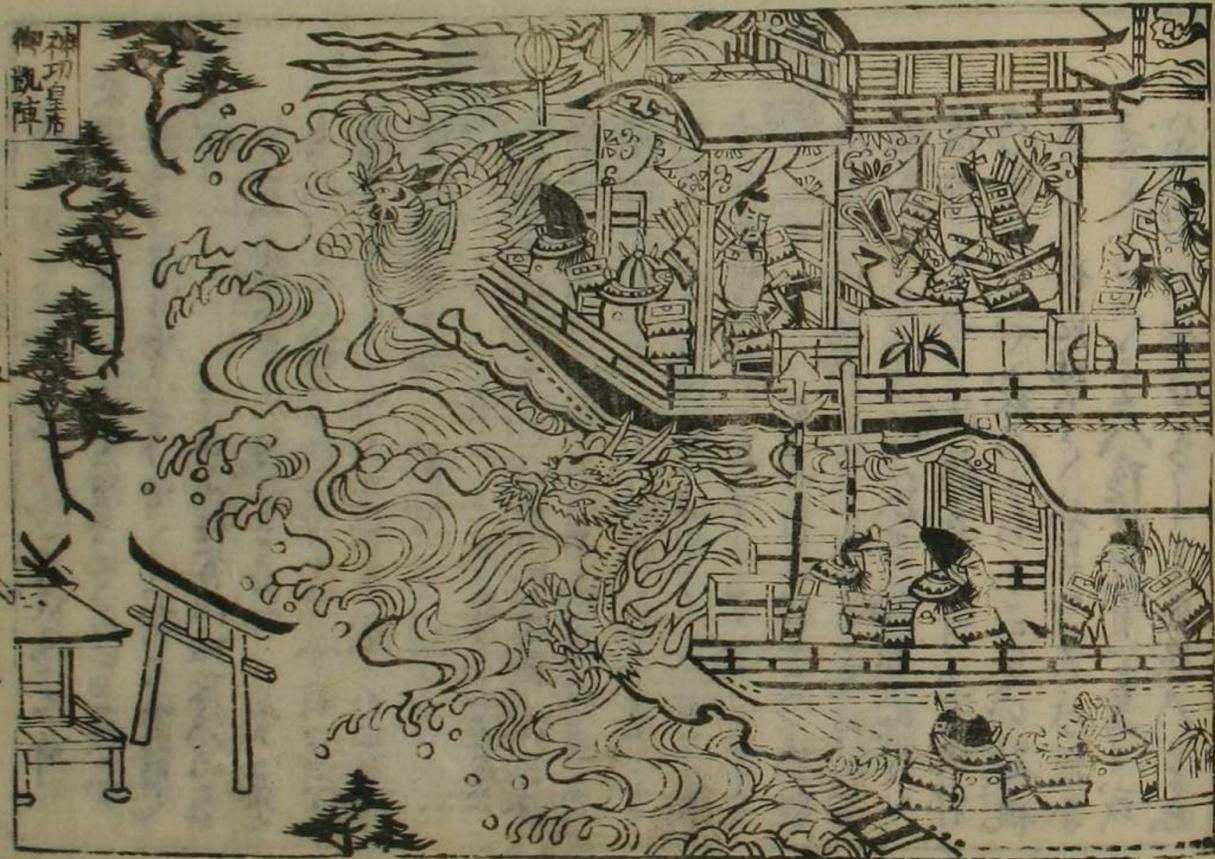 神功皇后
御凱陣